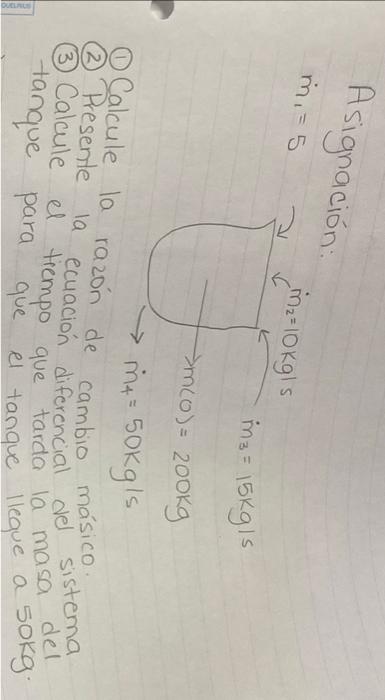 Asignación:
ṁ₁ = 5
ṁ₂=10Kg/s
ṁ₃ = 15Kg/s
m(0) = 200Kg
ṁ₄ = 50Kg/s
① Calcule la razón de cambio másico.
② Presente la ecuación diferencial del sistema
③ Calcule el tiempo que tarda la masa del
tanque para que el tanque llegue a 50Kg.